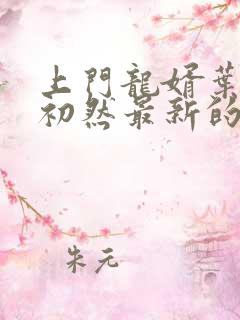 上門龍婿葉
初然最新的
朱元